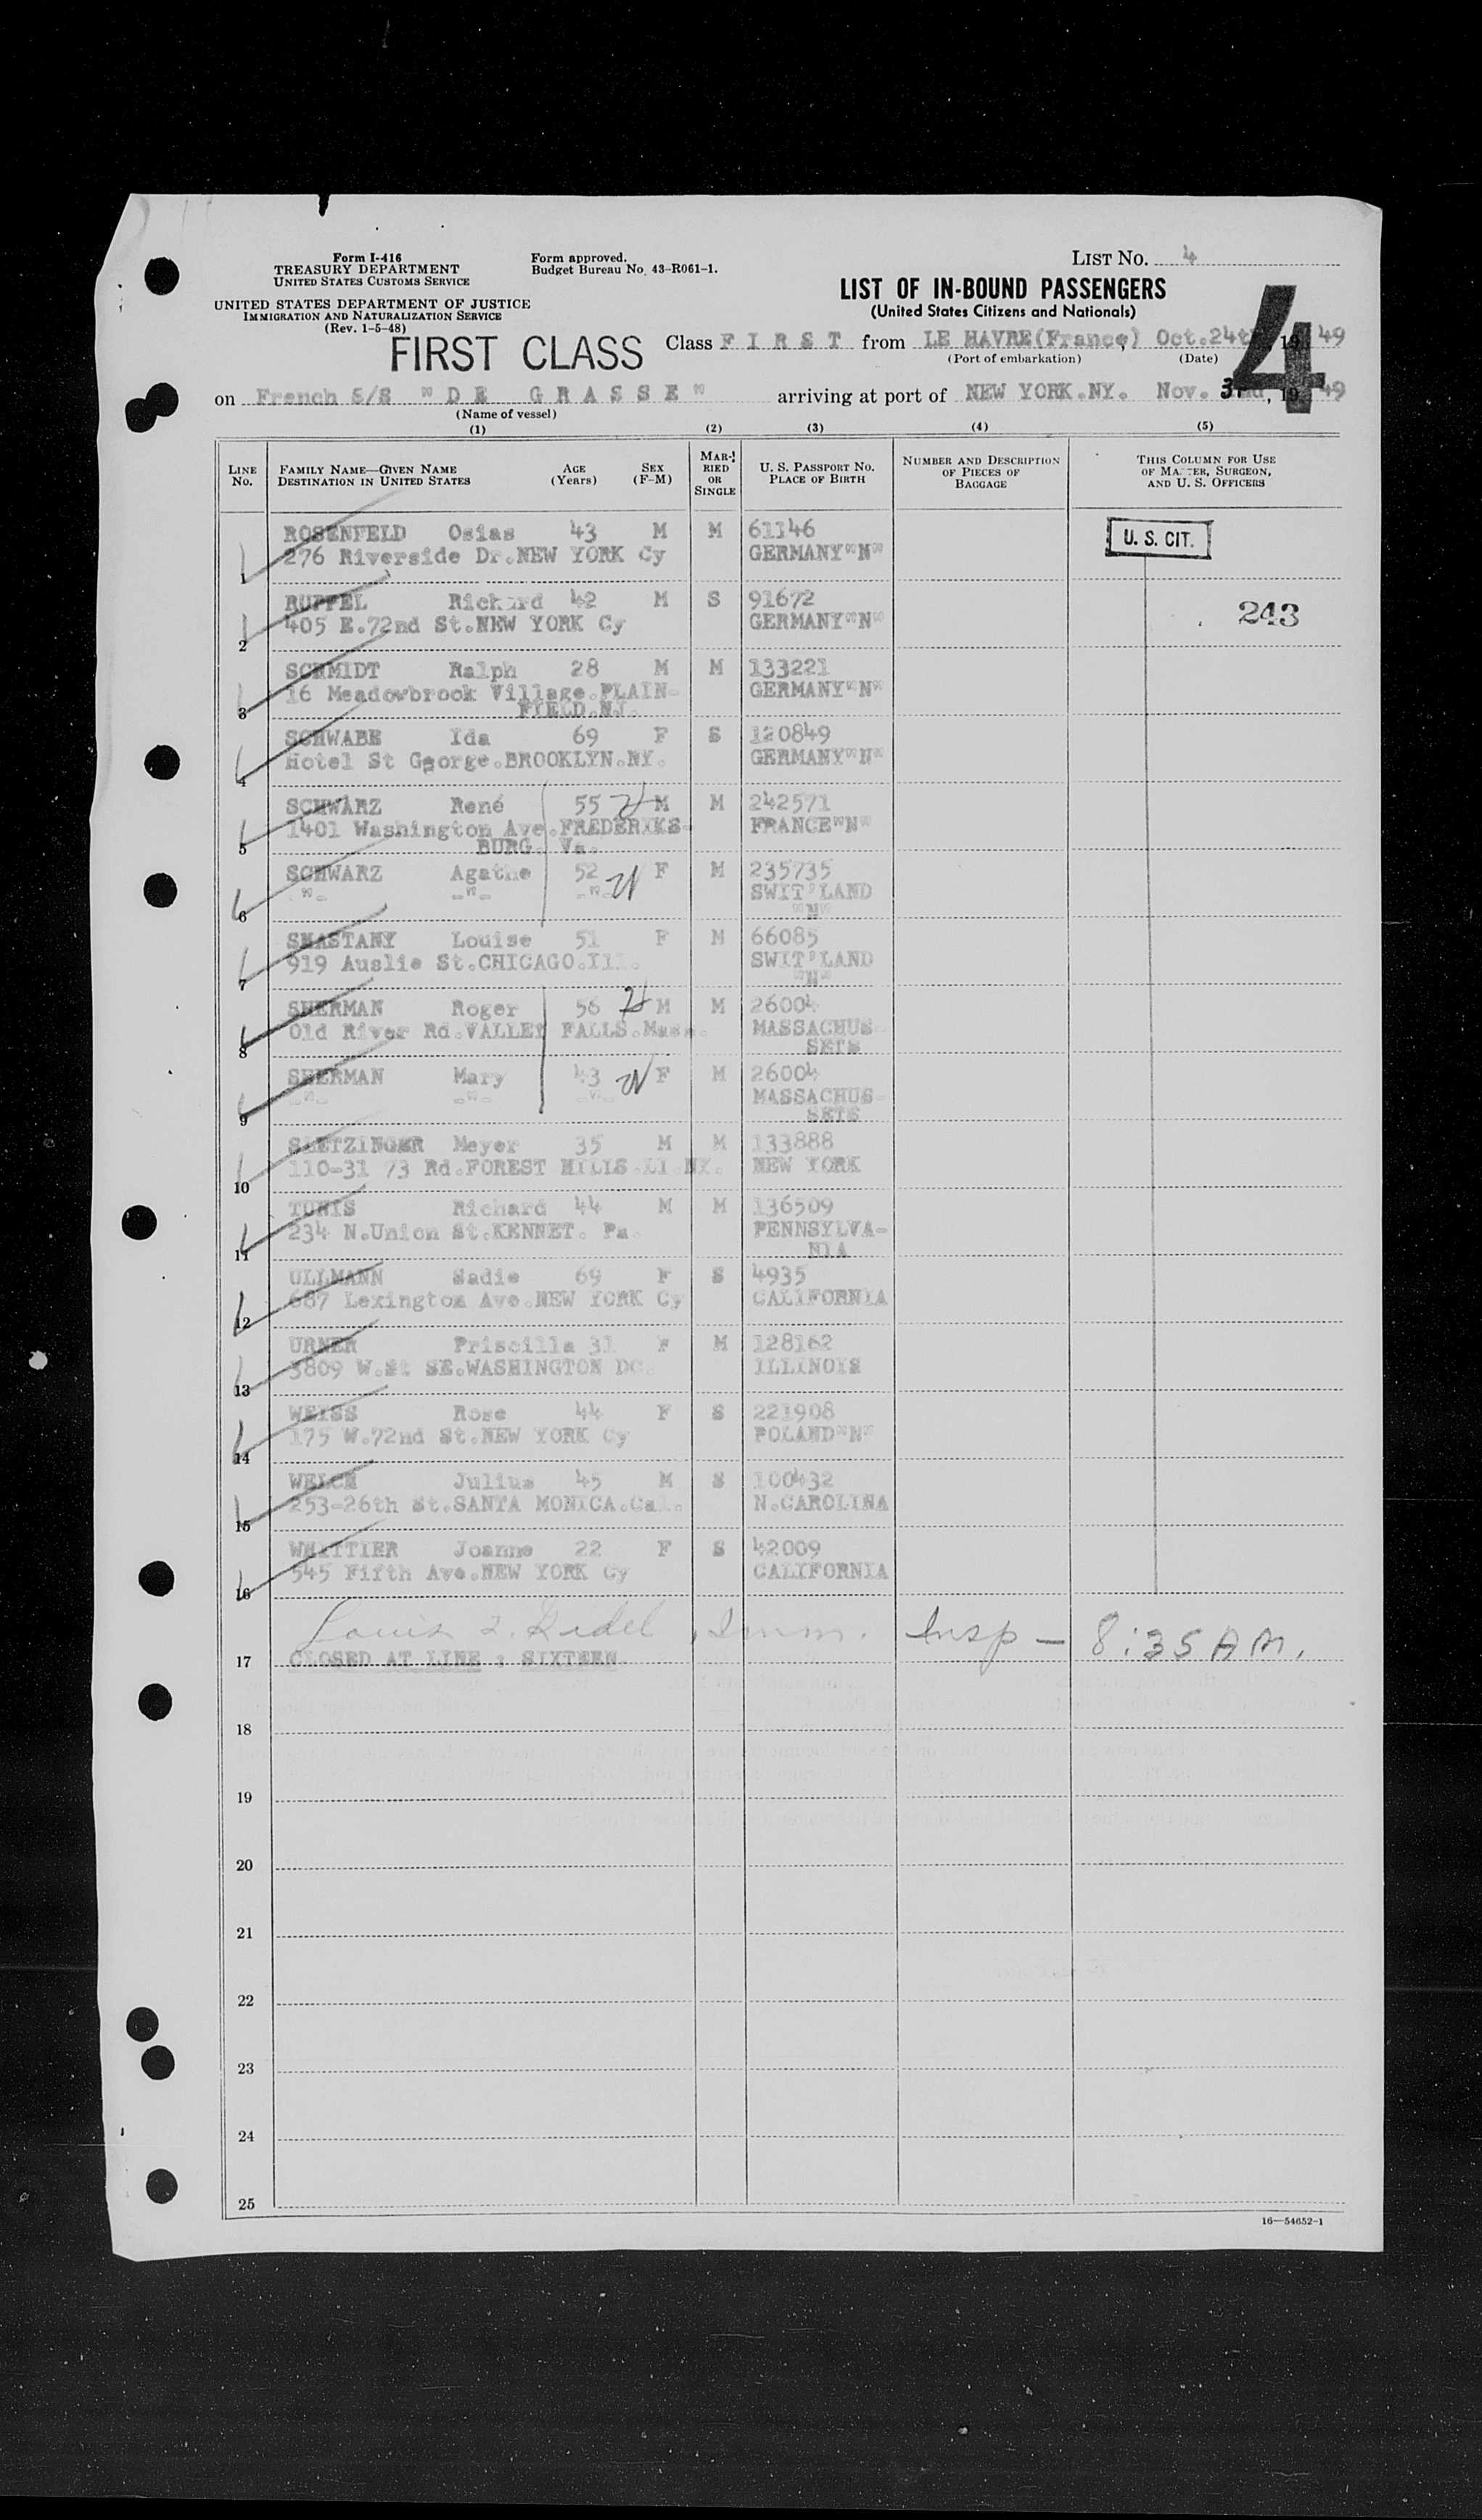 Form I-416
TREASURY DEPARTMENT
UNITED STATES CUSTOMS SERVICE
Form approved.
Budget Bureau No. 43-R061-1.
LIST No. 4
UNITED STATES DEPARTMENT OF JUSTICE
IMMIGRATION AND NATURALIZATION SERVICE
(Rev. 1-5-48)
LIST OF IN-BOUND PASSENGERS
(United States Citizens and Nationals)
4
FIRST CLASS
Class F I R S T from LE HAVRE(France) Oct.24th, 1949
(Port of embarkation) (Date)
on French S/S "D E G R A S S E" arriving at port of NEW YORK.NY. Nov. 3rd, 1949
(Name of vessel)
(1) (2) (3) (4) (5)
LINE No. FAMILY NAME—GIVEN NAME DESTINATION IN UNITED STATES AGE (Years) SEX (F-M) MARRIED OR SINGLE U. S. PASSPORT NO. PLACE OF BIRTH NUMBER AND DESCRIPTION OF PIECES OF BAGGAGE THIS COLUMN FOR USE OF MASTER, SURGEON, AND U. S. OFFICERS
ROSENFELD Osias 43 M M 61146 U. S. CIT.
1 276 Riverside Dr.NEW YORK Cy GERMANY"N"
RUPPEL Richard 42 M S 91672 243
2 405 E.72nd St.NEW YORK Cy GERMANY"N"
SCHMIDT Ralph 28 M M 133221
16 Meadowbrook Village.PLAIN- GERMANY"N"
3 FIELD.NJ.
SCHWABE Ida 69 F S 120849
4 Hotel St George.BROOKLYN.NY. GERMANY"N"
SCHWARZ René 55 M M 242571
1401 Washington Ave.FREDERIKS- FRANCE"N"
5 BURG. Va.
SCHWARZ Agathe 52 F M 235735
-"- -"- -"- SWIT'LAND
6 "N"
SMASTANY Louise 51 F M 66085
919 Auslie St.CHICAGO.Ill. SWIT'LAND
7 "N"
SHERMAN Roger 56 M M 26004
Old River Rd.VALLEY FALLS.Mass. MASSACHUS-
8 SETS
SHERMAN Mary 43 F M 26004
-"- -"- -"- MASSACHUS-
9 SETS
SLETZINGER Meyer 35 M M 133888
10 110-31 73 Rd.FOREST HILLS.LI.NY. NEW YORK
Richard 44 M M 136509
234 N.Union St.KENNET. Pa. PENNSYLVA-
11 NIA
ULLMANN Sadie 69 F S 4935
12 687 Lexington Ave.NEW YORK Cy CALIFORNIA
URNER Priscilla 31 F M 128162
13 3809 W.St SE.WASHINGTON DC. ILLINOIS
WEISS Rose 44 F S 221908
14 175 W.72nd St.NEW YORK Cy POLAND"N"
WELCH Julius 45 M S 100432
15 253-26th St.SANTA MONICA.Cal. N.CAROLINA
WHITTIER Joanne 22 F S 42009
16 545 Fifth Ave.NEW YORK Cy CALIFORNIA
Louis Imm. Insp - 8:35 AM.
17 CLOSED AT LINE : SIXTEEN
18
19
20
21
22
23
24
25
16—54652-1